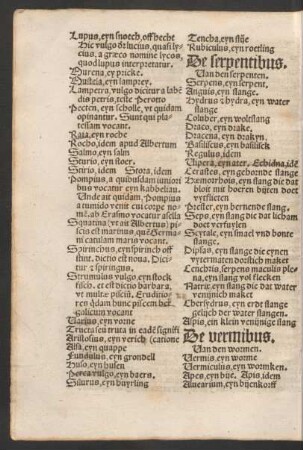 Lupus, eyn snoech, off hecht
Hic vulgo dr lucius, quasi ly
cius, a græco nomine lycos,
quod lupus interpretatur.
Murena, ey pricke.
Mustela, eyn lamprey.
Lampetra, vulgo dicitur a labē
dis petris, teste Perotto
Pecten, eyn scholle, vt quidam
opinantur. Sunt qui pla-
tessam vocant.
Raia, eyn roche
Rocho, idem apud Albertum
Salmo, eyn salm
Sturio, eyn stoer.
Stirio, idem Stora, idem
Pompius, a quibusdam iuniori
bus vocatur eyn kabbeliau.
Unde ait quidam, Pompius
a tumido venit cui corpe no-
mē. ab Erasmo vocatur asella
Squatina (vt ait Albertus) pi
scis est marinus, quē Germa
ni catulum maris vocant.
Spirinchus, eyn spirinch off
stint. dictio est noua. Dici-
tur & spiringus.
Strumulus vulgo, eyn stock
fisch. et est dictio barbara,
vt multæ pisciū. Eruditio-
res qdam hunc piscem ber-
galicum vocant
Uarius, eyn vorne
Tructa seu truta in eadē signifi
Arillosius, eyn verich (catione
Alsa, eyn quappe
Fundulus, eyn grondell
Huso, eyn husen
Perca vulgo, eyn baers.
Silurus, eyn buyrling
Tencha, eyn slye
Rubiculus, eyn roetling
De serpentibus.
Uan den serpenten.
Serpens, eyn serpent.
Anguis, eyn slange.
Hydrus & hydra, eyn water
slange
Coluber, eyn wolfslang
Draco, eyn drake.
Dracena, eyn drakyn.
Basiliscus, eyn basilisck
Regulus, idem
Uipera, eyn ater. Echidna, idē
Cerastes, eyn gehoernde slange
Hæmorrhois, eyn slang die dat
bloit mit boeren byten doet
verfliesen
Prester, eyn bernende slang.
Seps, eyn slang die dat licham
doet verfuylen
Scytale, eyn slang vnd bonte
slange
Dipsas, eyn slange die eynen
vytermaten dorstich maket
Lenchris, serpens maculis ple
na, eyn slang vol flecken
Natrix, eyn slang die dat water
fenynich maket
Chersydrus, eyn erdt slange
gelijch der water slangen.
Aspis, ein klein veninige slang
De vermibus.
Uan den wormen.
Uermis, eyn worme
Uermiculus, eyn wormken.
Apes, eyn bije. Apis, idem
Aluearium, eyn bijenkorff